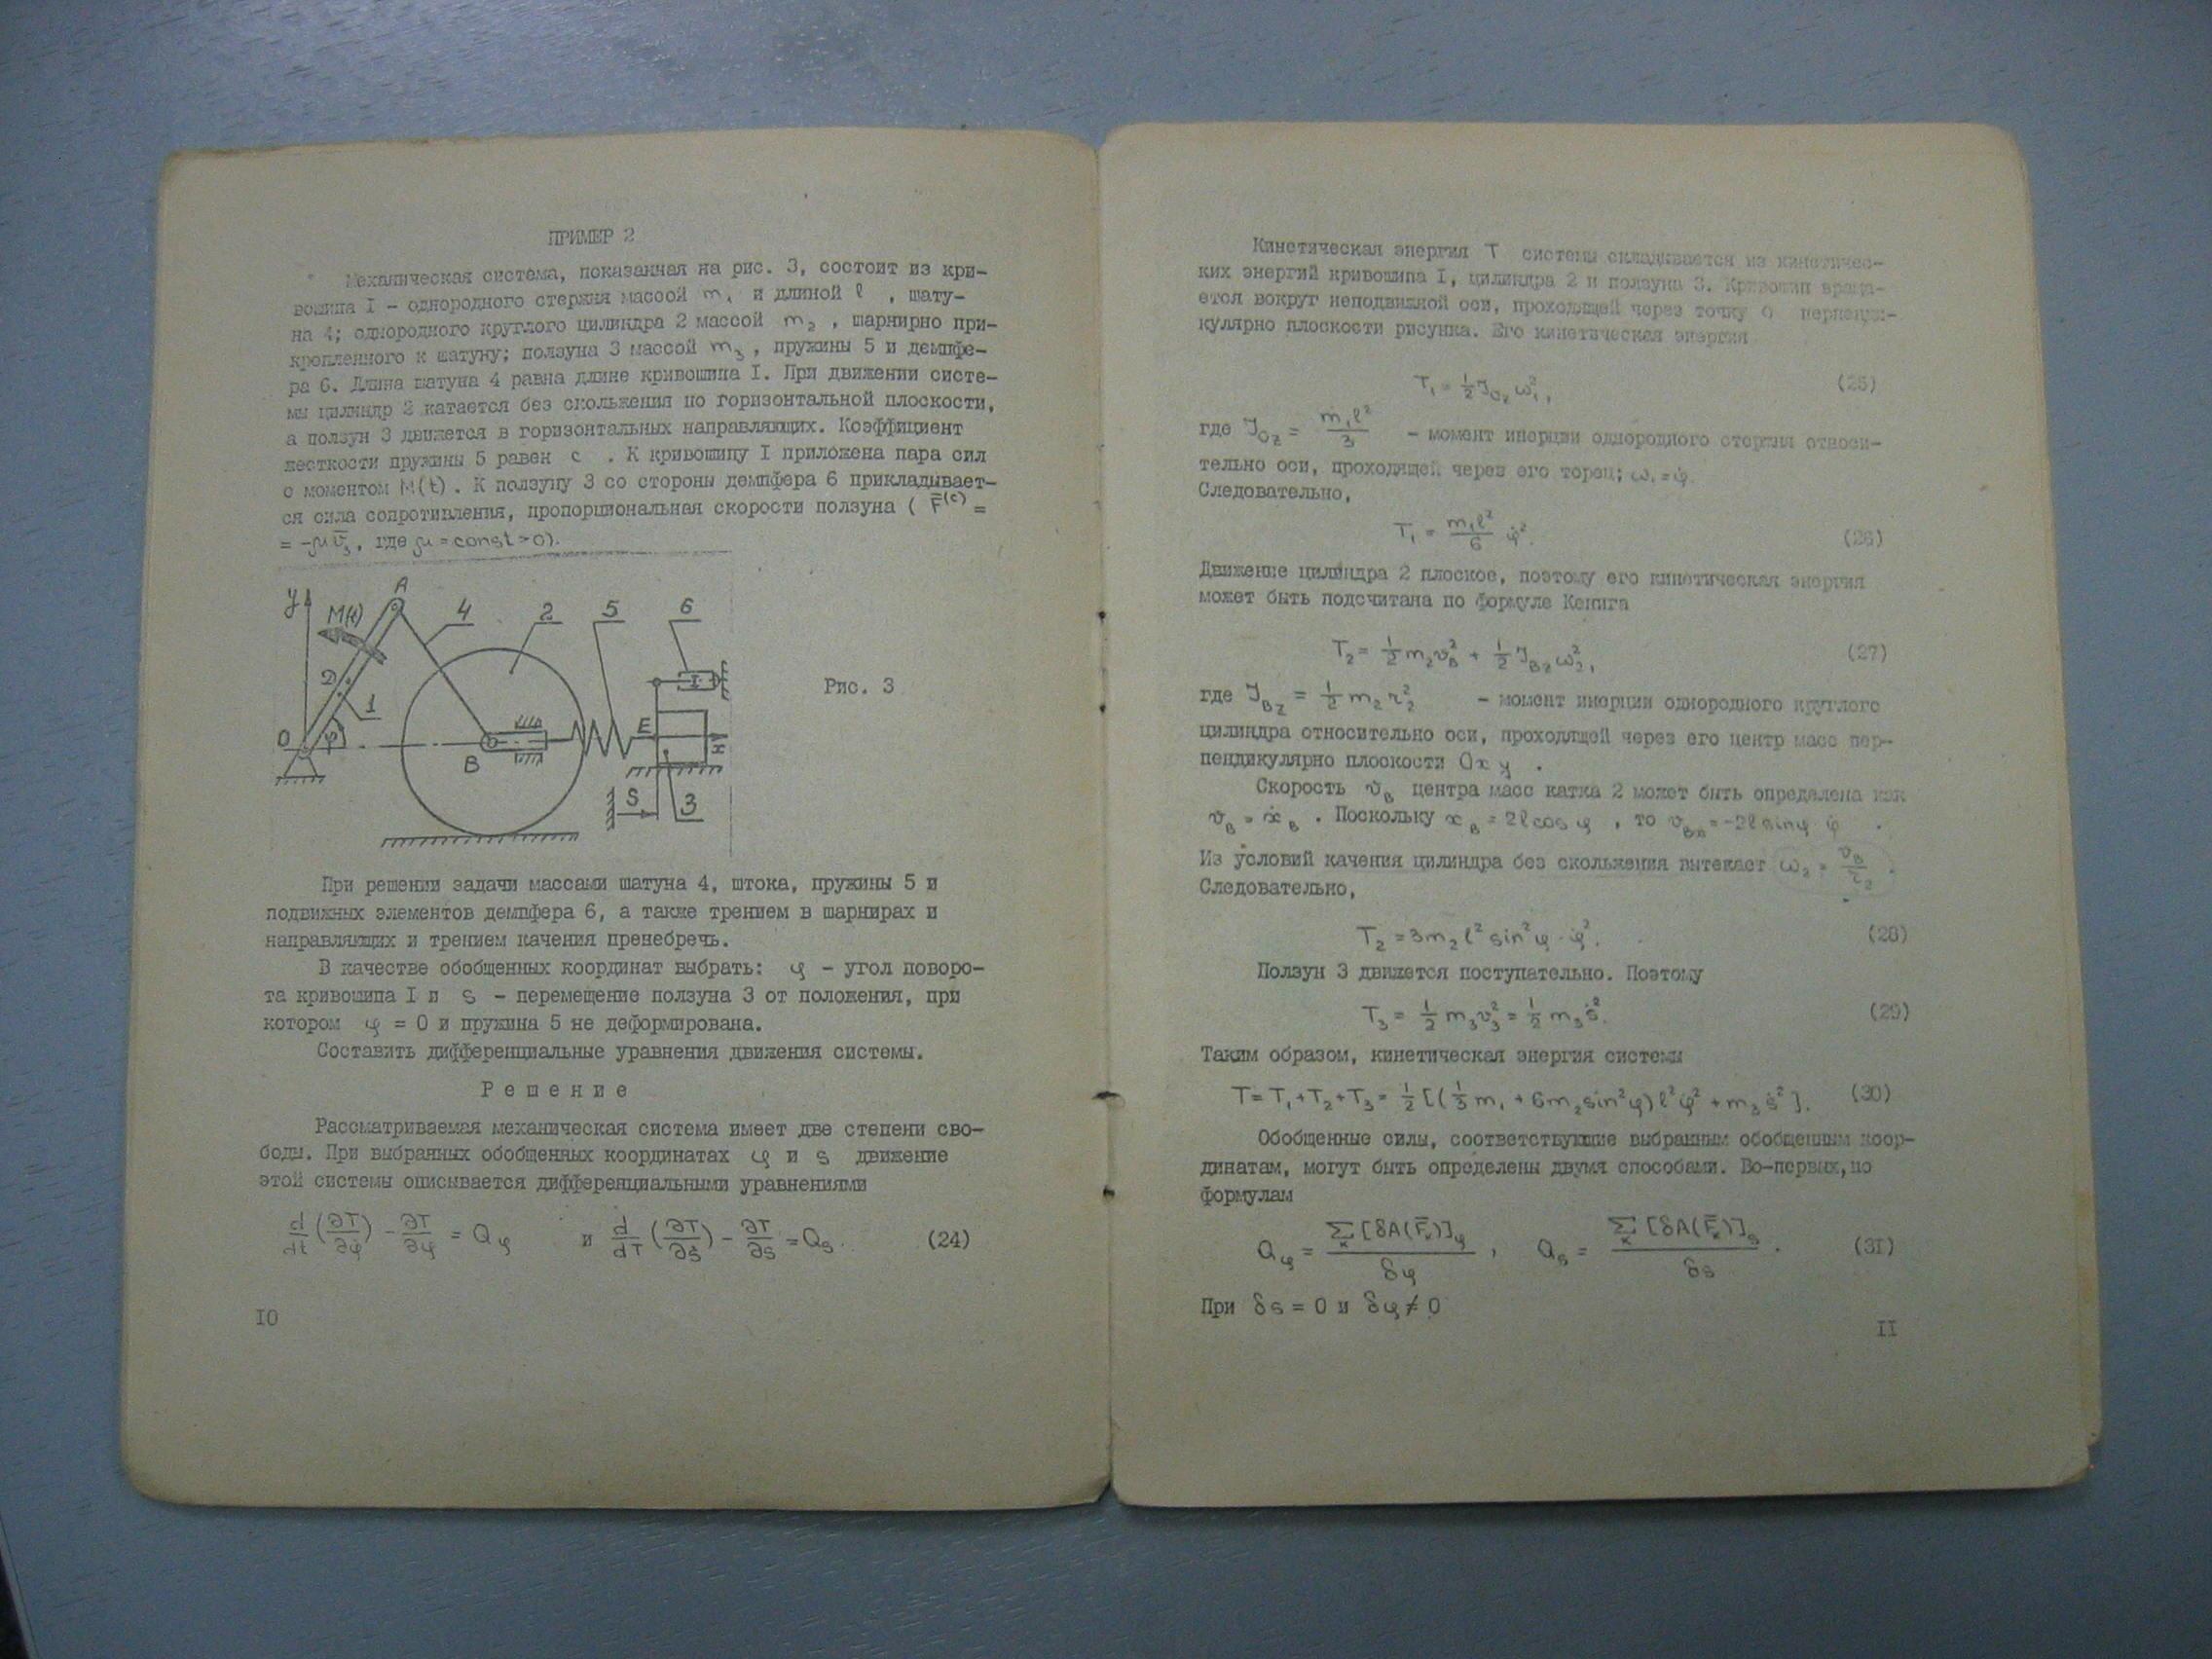 ПРИМЕР 2
Механическая система, показанная на рис. 3, состоит из кри-
вошипа I – однородного стержня массой m₁ и длиной ℓ , шату-
на 4; однородного круглого цилиндра 2 массой m₂ , шарнирно при-
крепленного к шатуну; ползуна 3 массой m₃ , пружины 5 и демпфе-
ра 6. Длина шатуна 4 равна длине кривошипа I. При движении систе-
мы цилиндр 2 катается без скольжения по горизонтальной плоскости,
а ползун 3 движется в горизонтальных направляющих. Коэффициент
жесткости пружины 5 равен c . К кривошипу I приложена пара сил
с моментом M(t). К ползуну 3 со стороны демпфера 6 прикладывает-
ся сила сопротивления, пропорциональная скорости ползуна ( F̄⁽ᶜ⁾ =
= -μv̄₃, где μ = const > 0).
y A M(t) 4 2 5 6
D 1 O φ B E x
S 3
Рис. 3
При решении задачи массами шатуна 4, штока, пружины 5 и
подвижных элементов демпфера 6, а также трением в шарнирах и
направляющих и трением качения пренебречь.
В качестве обобщенных координат выбрать: φ – угол поворо-
та кривошипа I и s – перемещение ползуна 3 от положения, при
котором φ = 0 и пружина 5 не деформирована.
Составить дифференциальные уравнения движения системы.
Решение
Рассматриваемая механическая система имеет две степени сво-
боды. При выбранных обобщенных координатах φ и s движение
этой системы описывается дифференциальными уравнениями
d/dt (∂T/∂φ̇) - ∂T/∂φ = Q_φ и d/dT (∂T/∂ṡ) - ∂T/∂s = Q_s. (24)
10
Кинетическая энергия T системы складывается из кинетичес-
ких энергий кривошипа I, цилиндра 2 и ползуна 3. Кривошип враща-
ется вокруг неподвижной оси, проходящей через точку O перпенди-
кулярно плоскости рисунка. Его кинетическая энергия
T₁ = ½ J_Oz ω₁², (25)
где J_Oz = m₁ℓ²/3 – момент инерции однородного стержня относи-
тельно оси, проходящей через его торец; ω₁ = φ̇.
Следовательно,
T₁ = m₁ℓ²/6 φ̇². (26)
Движение цилиндра 2 плоское, поэтому его кинетическая энергия
может быть подсчитана по формуле Кенига
T₂ = ½ m₂v_B² + ½ J_Bz ω₂², (27)
где J_Bz = ½ m₂ r₂² – момент инерции однородного круглого
цилиндра относительно оси, проходящей через его центр масс пер-
пендикулярно плоскости Oxy .
Скорость v_B центра масс катка 2 может быть определена как
v_B = ẋ_B . Поскольку x_B = 2ℓcosφ , то v_Bx = -2ℓsinφ φ̇ .
Из условий качения цилиндра без скольжения вытекает ω₂ = v_B/r₂ .
Следовательно,
T₂ = 3m₂ℓ² sin²φ · φ̇². (28)
Ползун 3 движется поступательно. Поэтому
T₃ = ½ m₃v₃² = ½ m₃ṡ². (29)
Таким образом, кинетическая энергия системы
T = T₁ + T₂ + T₃ = ½ [(⅓ m₁ + 6m₂sin²φ) ℓ²φ̇² + m₃ṡ²]. (30)
Обобщенные силы, соответствующие выбранным обобщенным коор-
динатам, могут быть определены двумя способами. Во-первых, по
формулам
Q_φ = Σ_k [δA(F̄_k)]_φ / δφ , Q_s = Σ_k [δA(F̄_k)]_s / δs . (31)
При δs = 0 и δφ ≠ 0
II